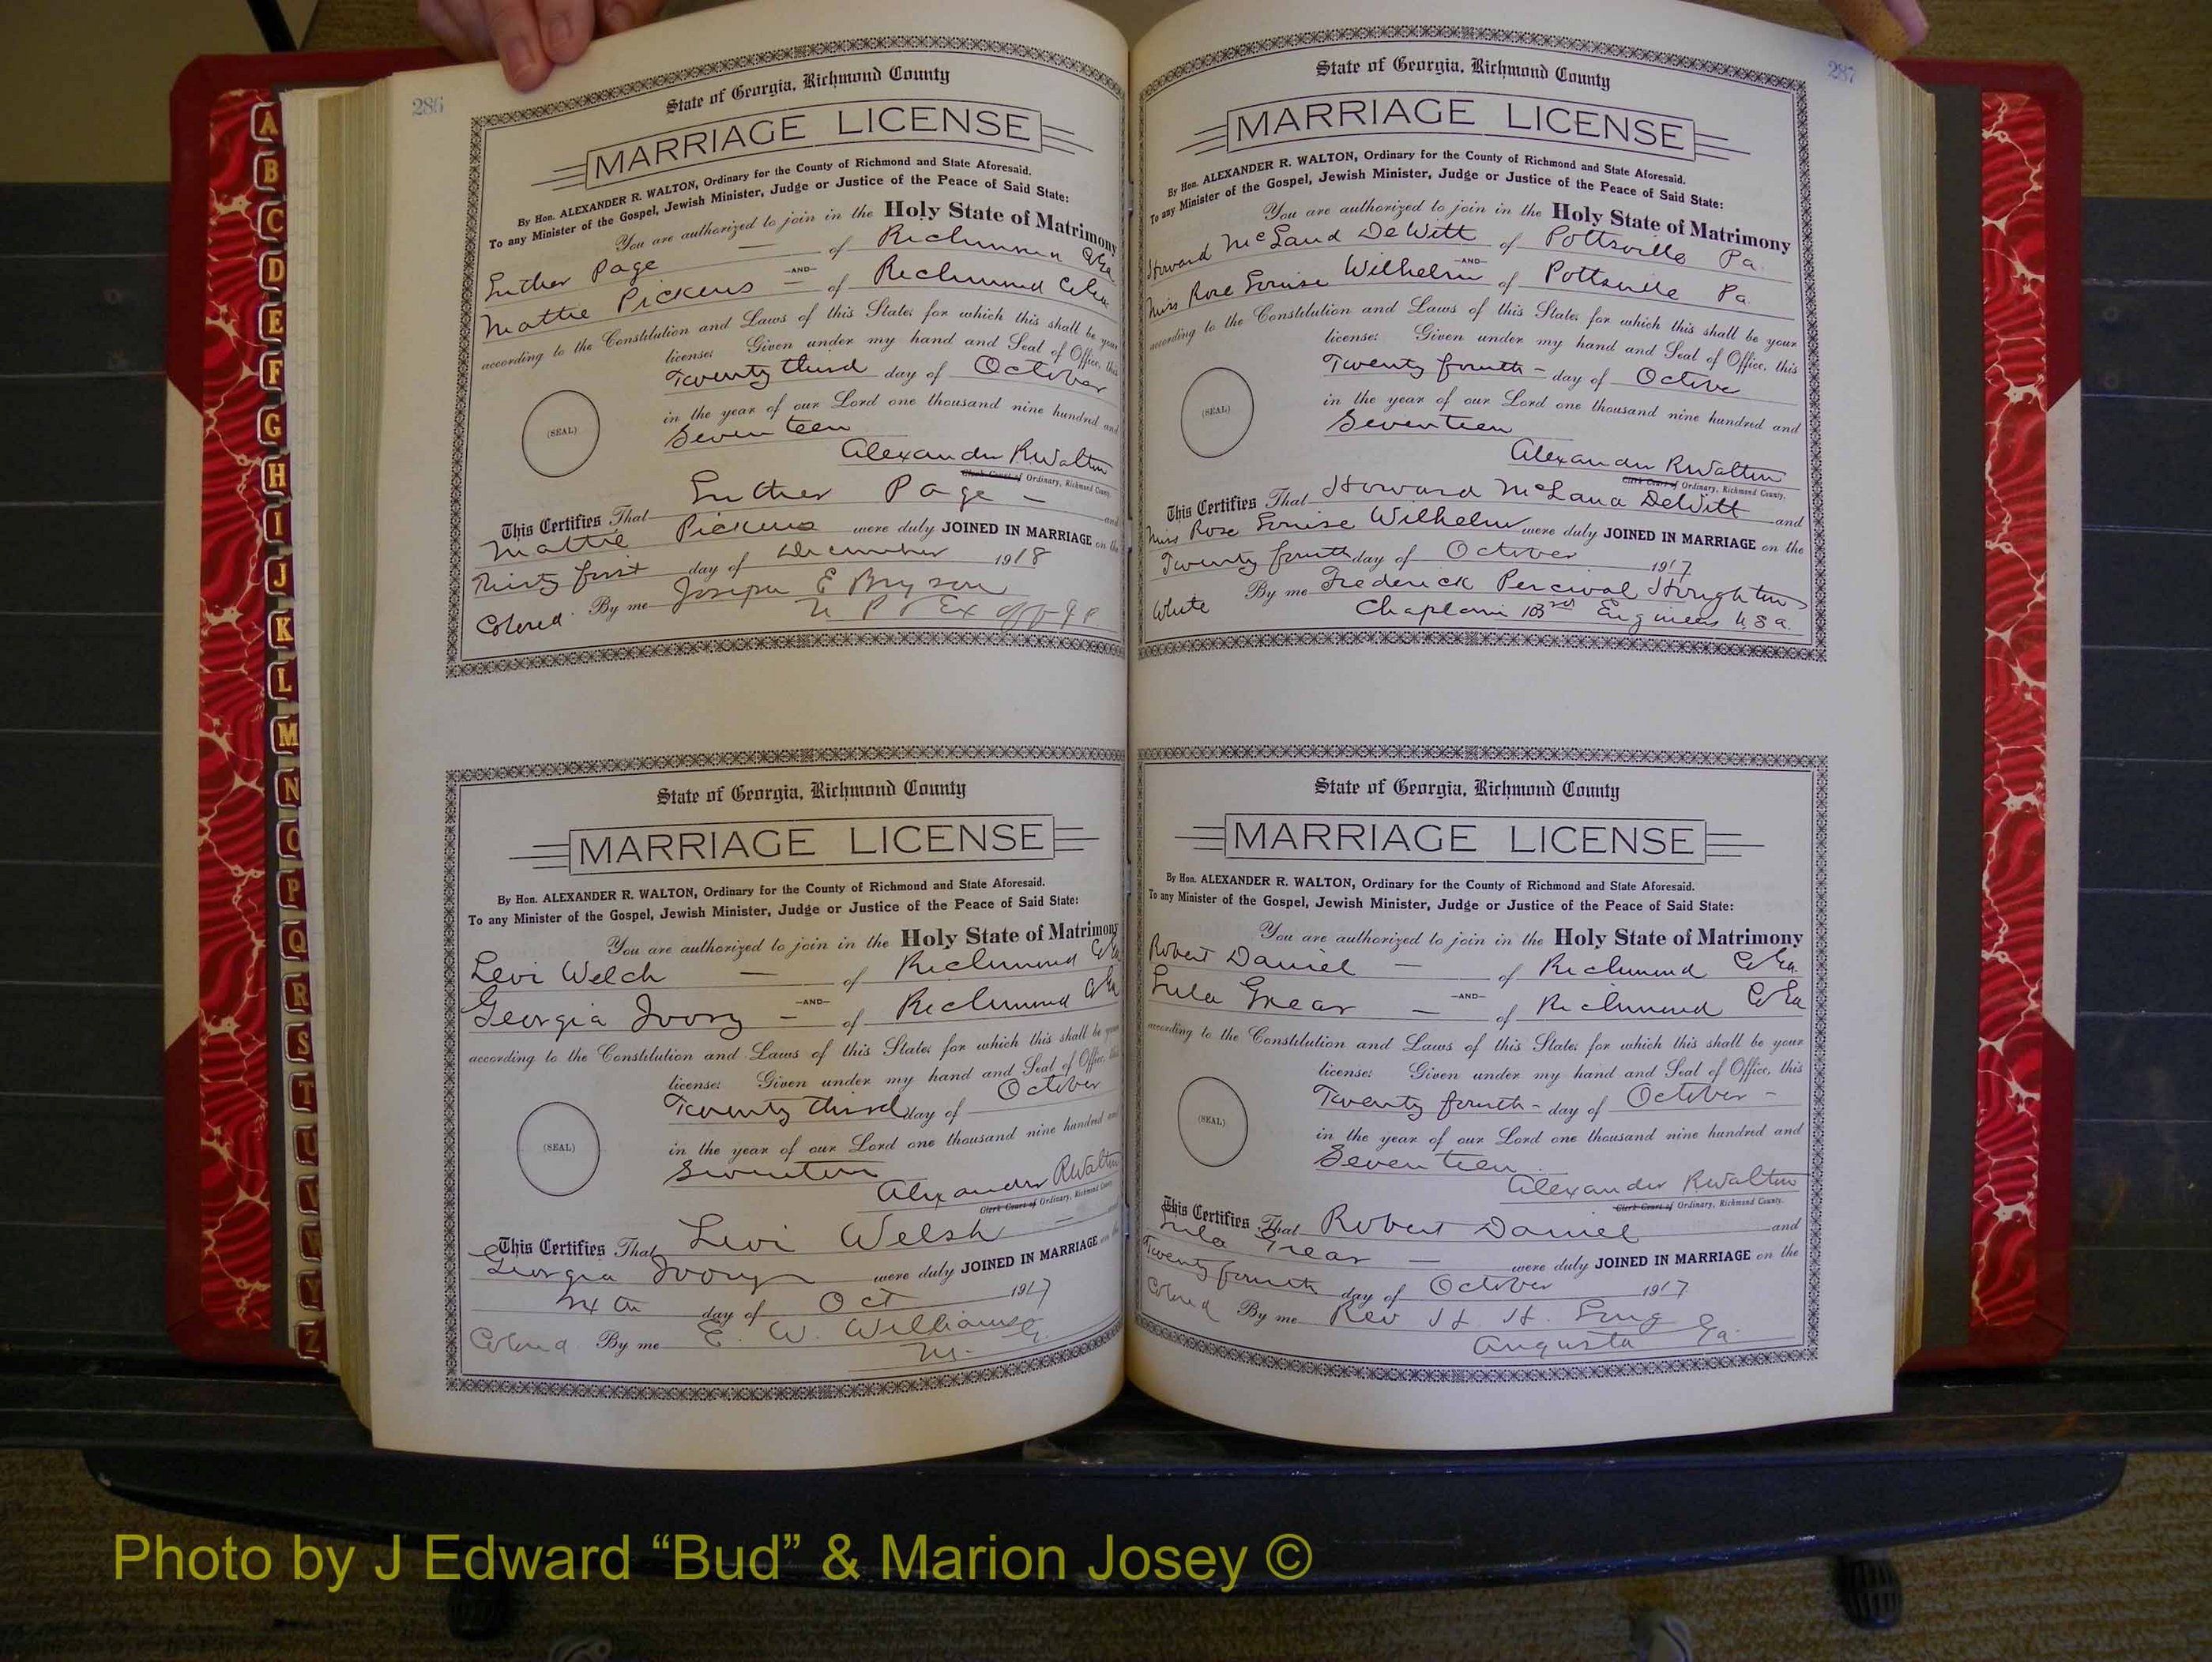 286
State of Georgia, Richmond County
MARRIAGE LICENSE
By Hon. ALEXANDER R. WALTON, Ordinary for the County of Richmond and State Aforesaid.
To any Minister of the Gospel, Jewish Minister, Judge or Justice of the Peace of Said State:
You are authorized to join in the Holy State of Matrimony
Luther Page — of Richmond Co Ga
—AND—
Mattie Pickens — of Richmond Co Ga
according to the Constitution and Laws of this State; for which this shall be your
license: Given under my hand and Seal of Office, this
Twenty third day of October
in the year of our Lord one thousand nine hundred and
Seventeen
(SEAL)
Alexander R Walton
Clerk Court of Ordinary, Richmond County.
This Certifies That Luther Page — and
Mattie Pickens were duly JOINED IN MARRIAGE on the
Thirty first day of December 1918
Colored By me Joseph E Bryson
N P & Ex off J P
State of Georgia, Richmond County
MARRIAGE LICENSE
By Hon. ALEXANDER R. WALTON, Ordinary for the County of Richmond and State Aforesaid.
To any Minister of the Gospel, Jewish Minister, Judge or Justice of the Peace of Said State:
You are authorized to join in the Holy State of Matrimony
Levi Welch — of Richmond Co Ga
—AND—
Georgia Ivory — of Richmond Co Ga
according to the Constitution and Laws of this State; for which this shall be your
license: Given under my hand and Seal of Office, this
Twenty third day of October
in the year of our Lord one thousand nine hundred and
Seventeen
(SEAL)
Alexander R Walton
Clerk Court of Ordinary, Richmond County.
This Certifies That Levi Welsh — and
Georgia Ivory were duly JOINED IN MARRIAGE on the
day of Oct 1917
Colored By me E. W. Williams
M. G.
287
State of Georgia, Richmond County
MARRIAGE LICENSE
By Hon. ALEXANDER R. WALTON, Ordinary for the County of Richmond and State Aforesaid.
To any Minister of the Gospel, Jewish Minister, Judge or Justice of the Peace of Said State:
You are authorized to join in the Holy State of Matrimony
Howard McLaud DeWitt of Pottsville Pa.
—AND—
Miss Rose Louise Wilhelm of Pottsville Pa.
according to the Constitution and Laws of this State; for which this shall be your
license: Given under my hand and Seal of Office, this
Twenty fourth — day of October
in the year of our Lord one thousand nine hundred and
Seventeen
(SEAL)
Alexander R Walton
Clerk Court of Ordinary, Richmond County.
This Certifies That Howard McLaud DeWitt and
Miss Rose Louise Wilhelm were duly JOINED IN MARRIAGE on the
Twenty fourth day of October 1917
White By me Frederick Percival Houghton
Chaplain 103rd Engineers U.S.A.
State of Georgia, Richmond County
MARRIAGE LICENSE
By Hon. ALEXANDER R. WALTON, Ordinary for the County of Richmond and State Aforesaid.
To any Minister of the Gospel, Jewish Minister, Judge or Justice of the Peace of Said State:
You are authorized to join in the Holy State of Matrimony
Robert Daniel — of Richmond Co Ga
—AND—
Lula Grear — of Richmond Co Ga
according to the Constitution and Laws of this State; for which this shall be your
license: Given under my hand and Seal of Office, this
Twenty fourth — day of October —
in the year of our Lord one thousand nine hundred and
Seventeen
(SEAL)
Alexander R Walton
Clerk Court of Ordinary, Richmond County.
This Certifies That Robert Daniel and
Lula Grear — were duly JOINED IN MARRIAGE on the
Twenty fourth day of October 1917
Colored By me Rev H. H. Long
Augusta Ga.
A
B
C
D
E
F
G
H
I
J
K
L
M
N
O
P
Q
R
S
T
U
V
W
Y
Z
Photo by J Edward “Bud” & Marion Josey ©